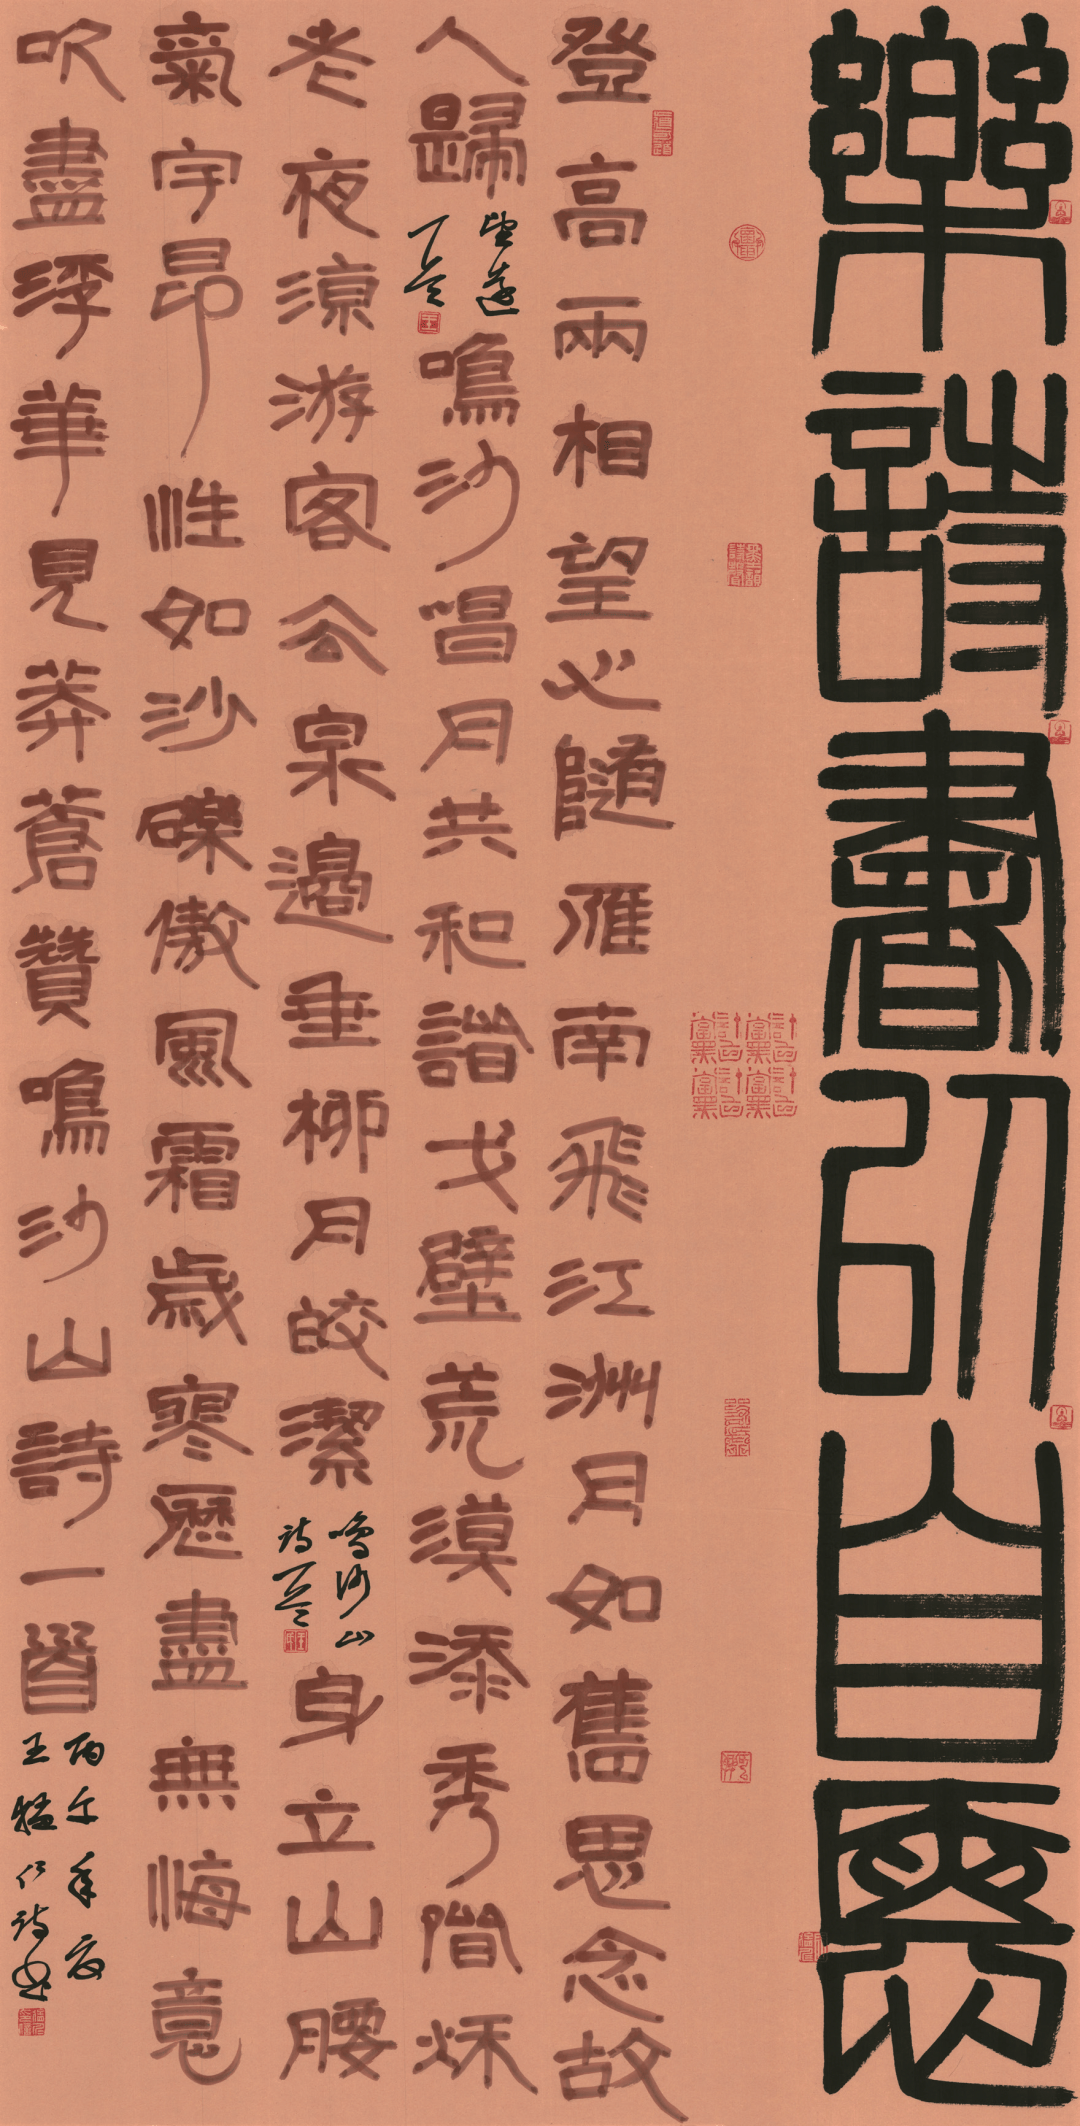 樂詩書以自
登高兩相望心隨雁南飛江洲月如舊思念故
人歸
望遠
一首
鳴沙唱月共和諧戈壁荒漠添秀間秌
老夜涼游客去泉邊垂柳月皎潔
鳴沙山
詩一首
身立山腰
氣宇昂性如沙礫傲風霜歲寒歷盡無悔意
吹盡浮華見莽蒼贊鳴沙山詩一首
丙午年夏
王猛仁詩書